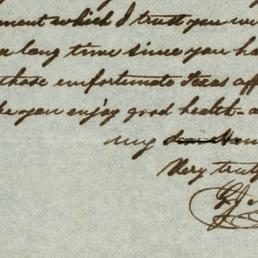 ment which I trust you we
a long time since you ha
those unfortunate Texas aff
you enjoy good health - a
my
Very truly